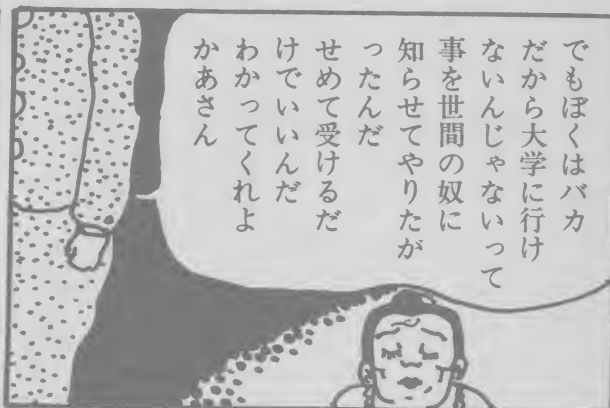 でもぼくはバカ
だから大学に行け
ないんじゃないって
事を世間の奴に
知らせてやりたが
ったんだ
せめて受けるだ
けでいいんだ
わかってくれよ
かあさん